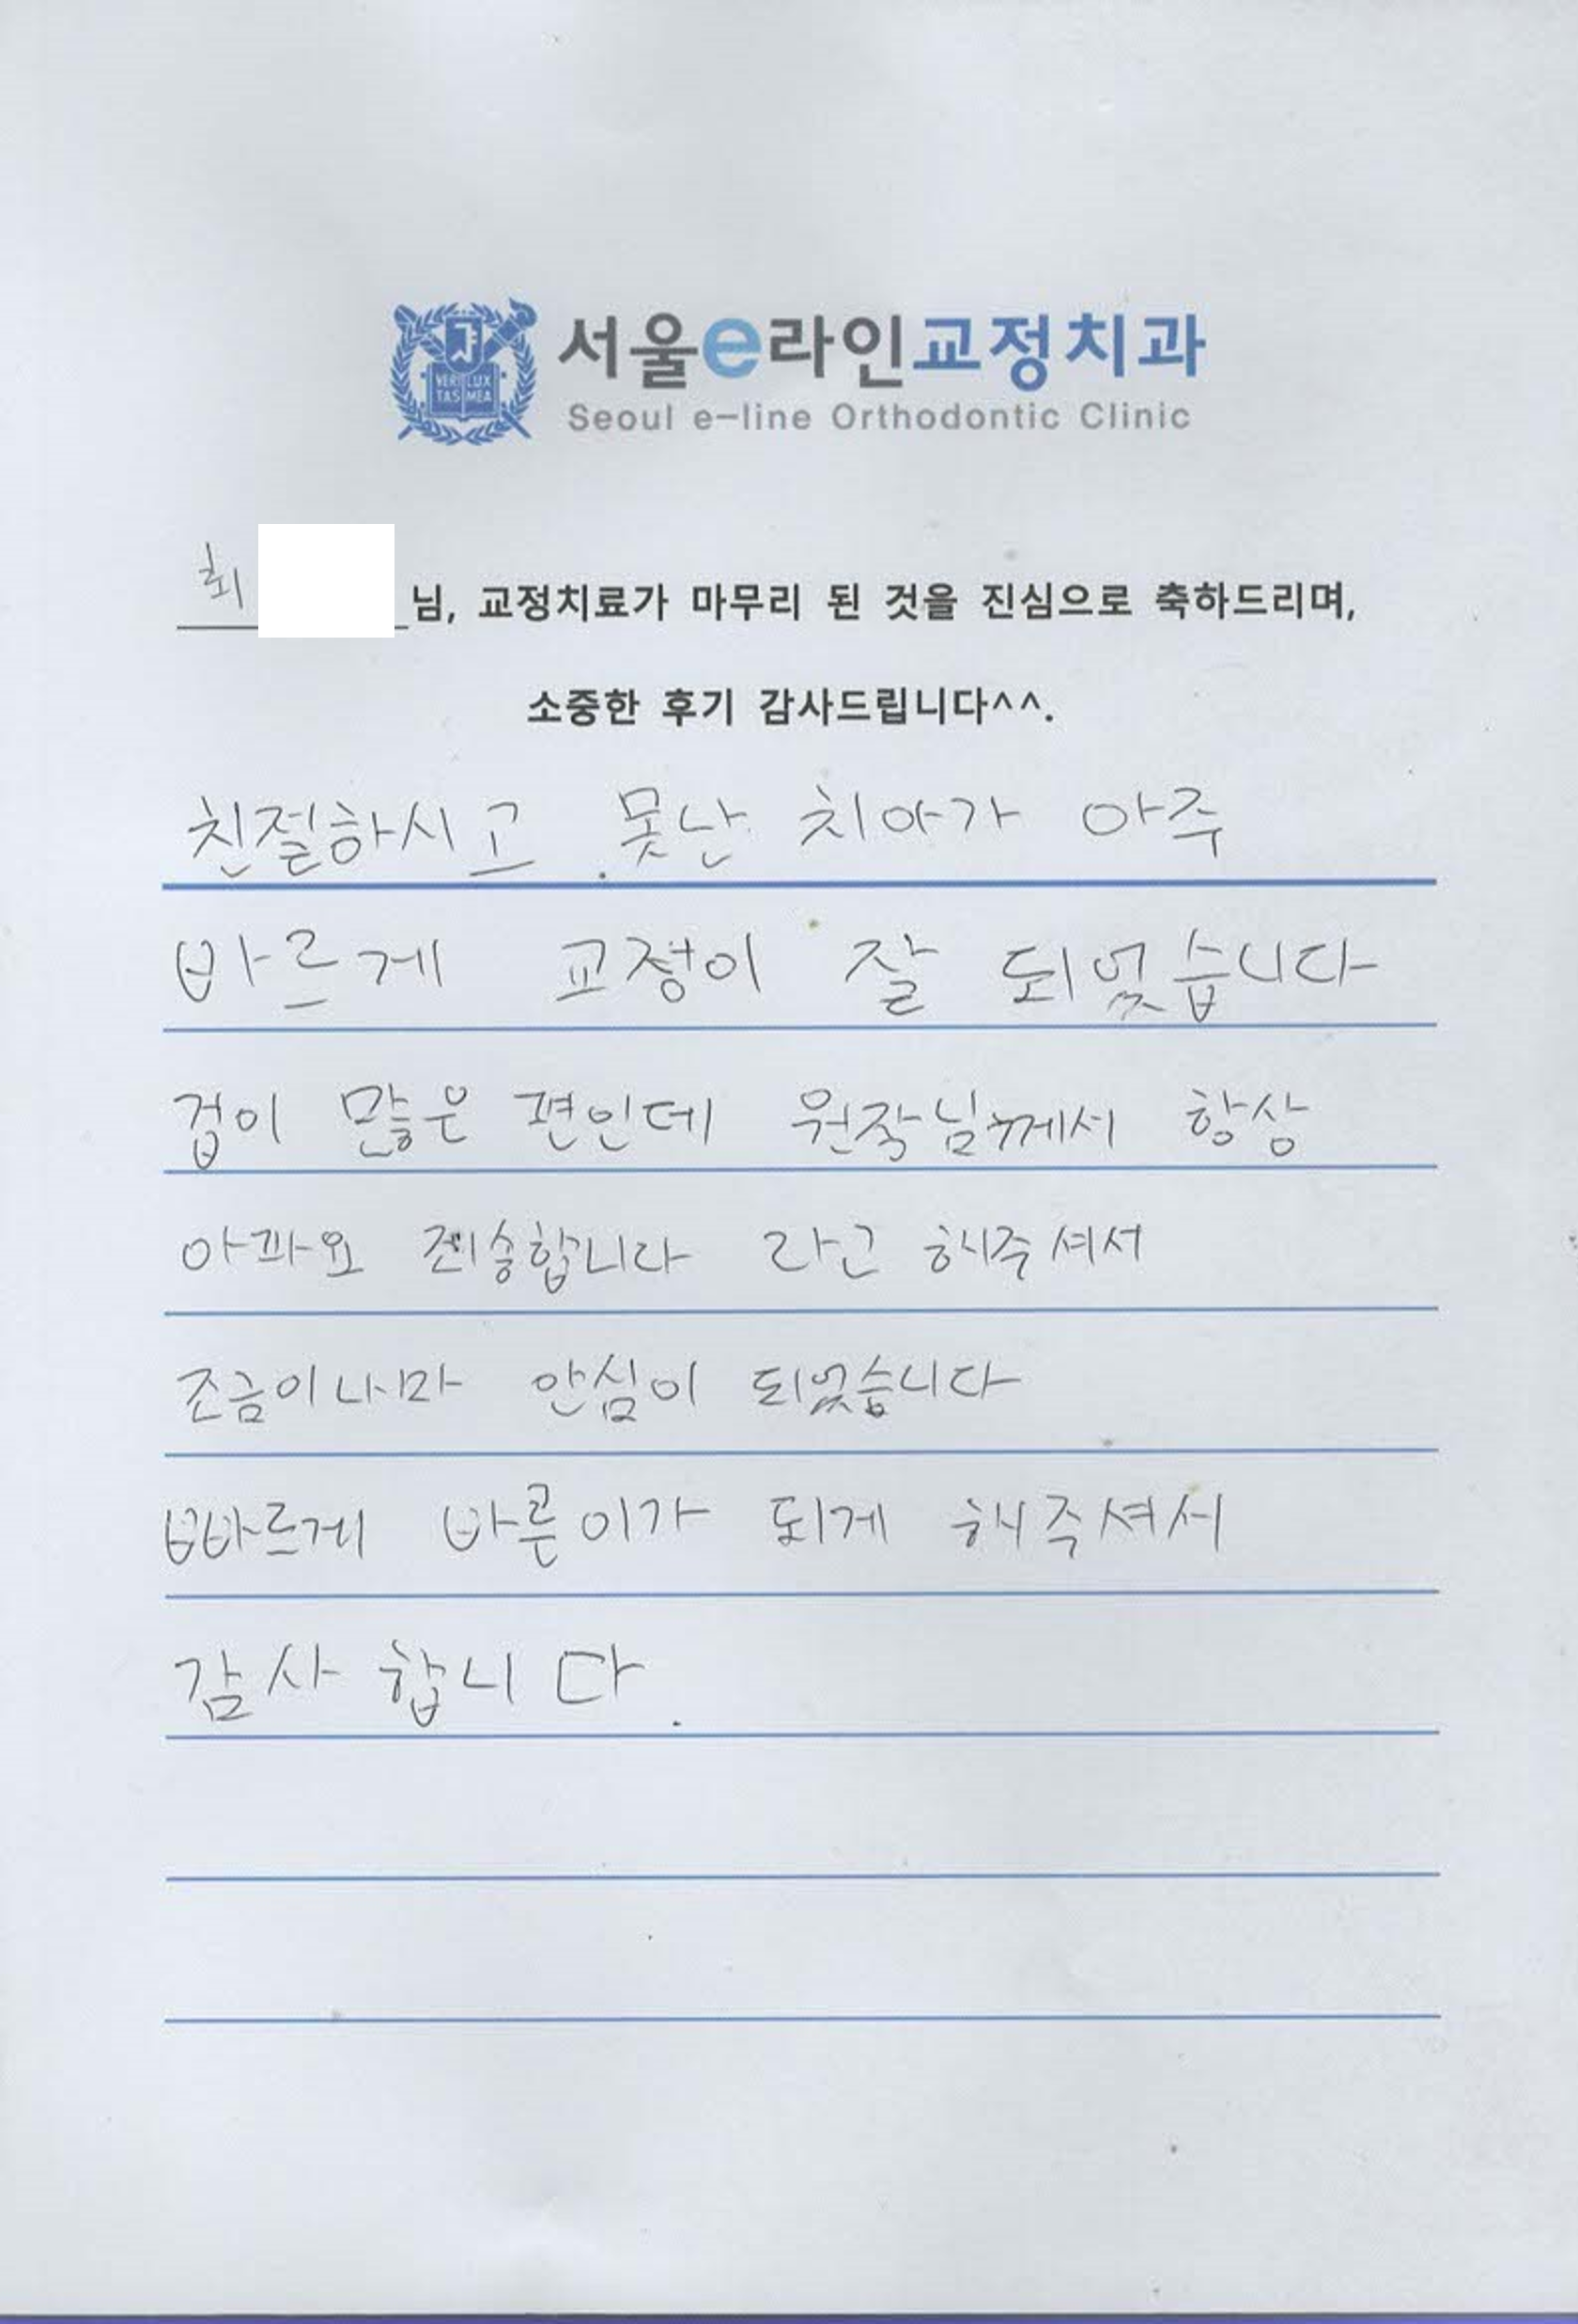 서울e라인교정치과
Seoul e-line Orthodontic Clinic
VERI LUX
TAS MEA
최 님, 교정치료가 마무리 된 것을 진심으로 축하드리며,
소중한 후기 감사드립니다^^.
친절하시고 못난 치아가 아주
바르게 교정이 잘 되었습니다
겁이 많은 편인데 원장님께서 항상
아파요 죄송합니다 라고 해주셔서
조금이나마 안심이 되었습니다
빠르게 바른이가 되게 해주셔서
감사합니다.